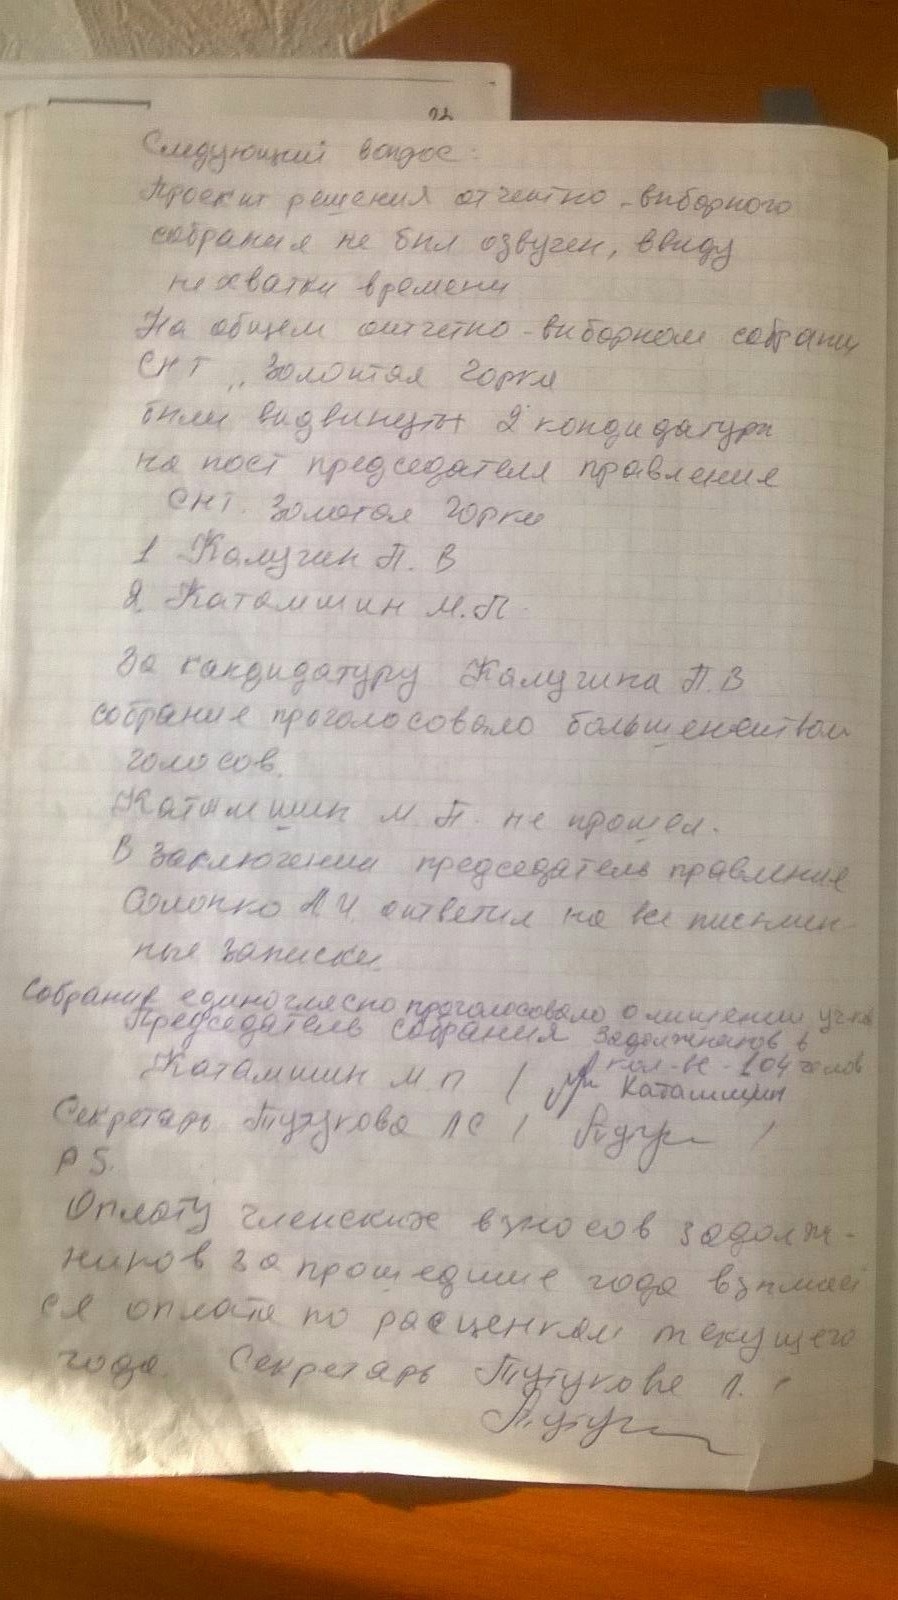 Следующий вопрос:
Проект решения отчетно-выборного
собрания не был озвучен, ввиду
нехватки времени
На общем отчетно-выборном собрании
СНТ „Золотая Горка
были выдвинуты 2 кандидатуры
на пост председателя правления
СНТ. Золотая Горка
1 Калугин П. В
2. Каташшин М.П.
За кандидатуру Калугина П.В
собрание проголосовало большенством
голосов.
Каташшин М.П. не прошел.
В заключении председатель правления
А.И. ответил на все письмен-
ные записки.
Собрание единогласно проголосовало о лишении уч-ков
Председатель собрания задолжников в
кол-ве - 104 челов
Каташшин М П / Каташшин
Секретарь Тутукова Л С / /
P S.
Оплату членских взносов задолж-
ников за прошедшие года
ся оплата по расценкам текущего
года. Секретарь Тутукова Л.